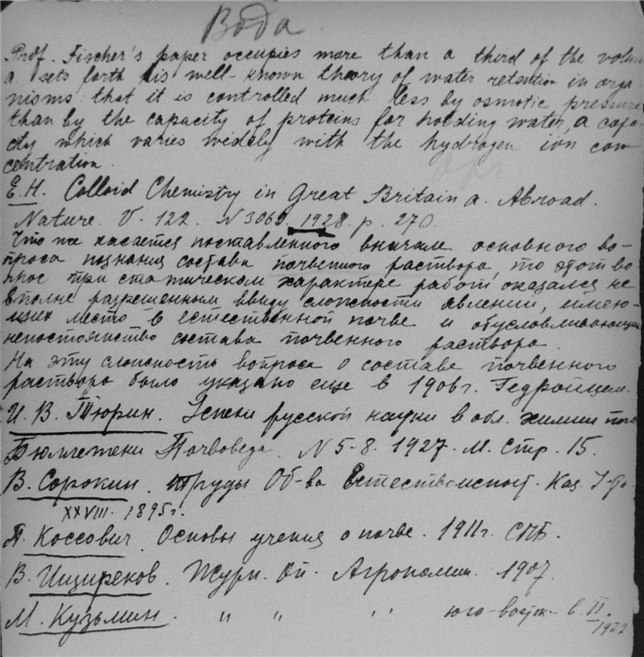 Вода
Prof. Fischer's paper occupies more than a third of the volum
a. sets forth his well-known theory of water retention in orga
nisms: that it is controlled much less by osmotic pressure
than by the capacity of proteins for holding water, a capa
city which varies widely with the hydrogen ion con
centration.
E.H. Colloid Chemistry in Great Britain a. Abroad.
Nature. V. 122. N 3069 1928 p. 270.
Что же касается поставленного вначале основного во-
проса познания состава почвенного раствора, то этот во
прос при статическом характере работ оказался не
вполне разрешенным ввиду сложности явлений, имею-
щих место в естественной почве и обусловливающих
непостоянство состава почвенного раствора.
На эту сложность вопроса о составе почвенного
раствора было указано еще в 1906 г. Гедройцем.
И. В. Тюрин. Успехи русской науки в обл. химии поч
Бюллетени Почвоведа. N 5-8. 1927. М. Стр. 15.
В. Сорокин. Труды Об-ва Естествоиспыт. Каз. У-та
XXVIII. 1895 г.
П. Коссович. Основы учения о почве. 1911 г. СПБ.
В. Ищереков. Журн. Оп. Агрономии. 1907.
М. Кузьмин. " " " юго-восток. в. II. 1922